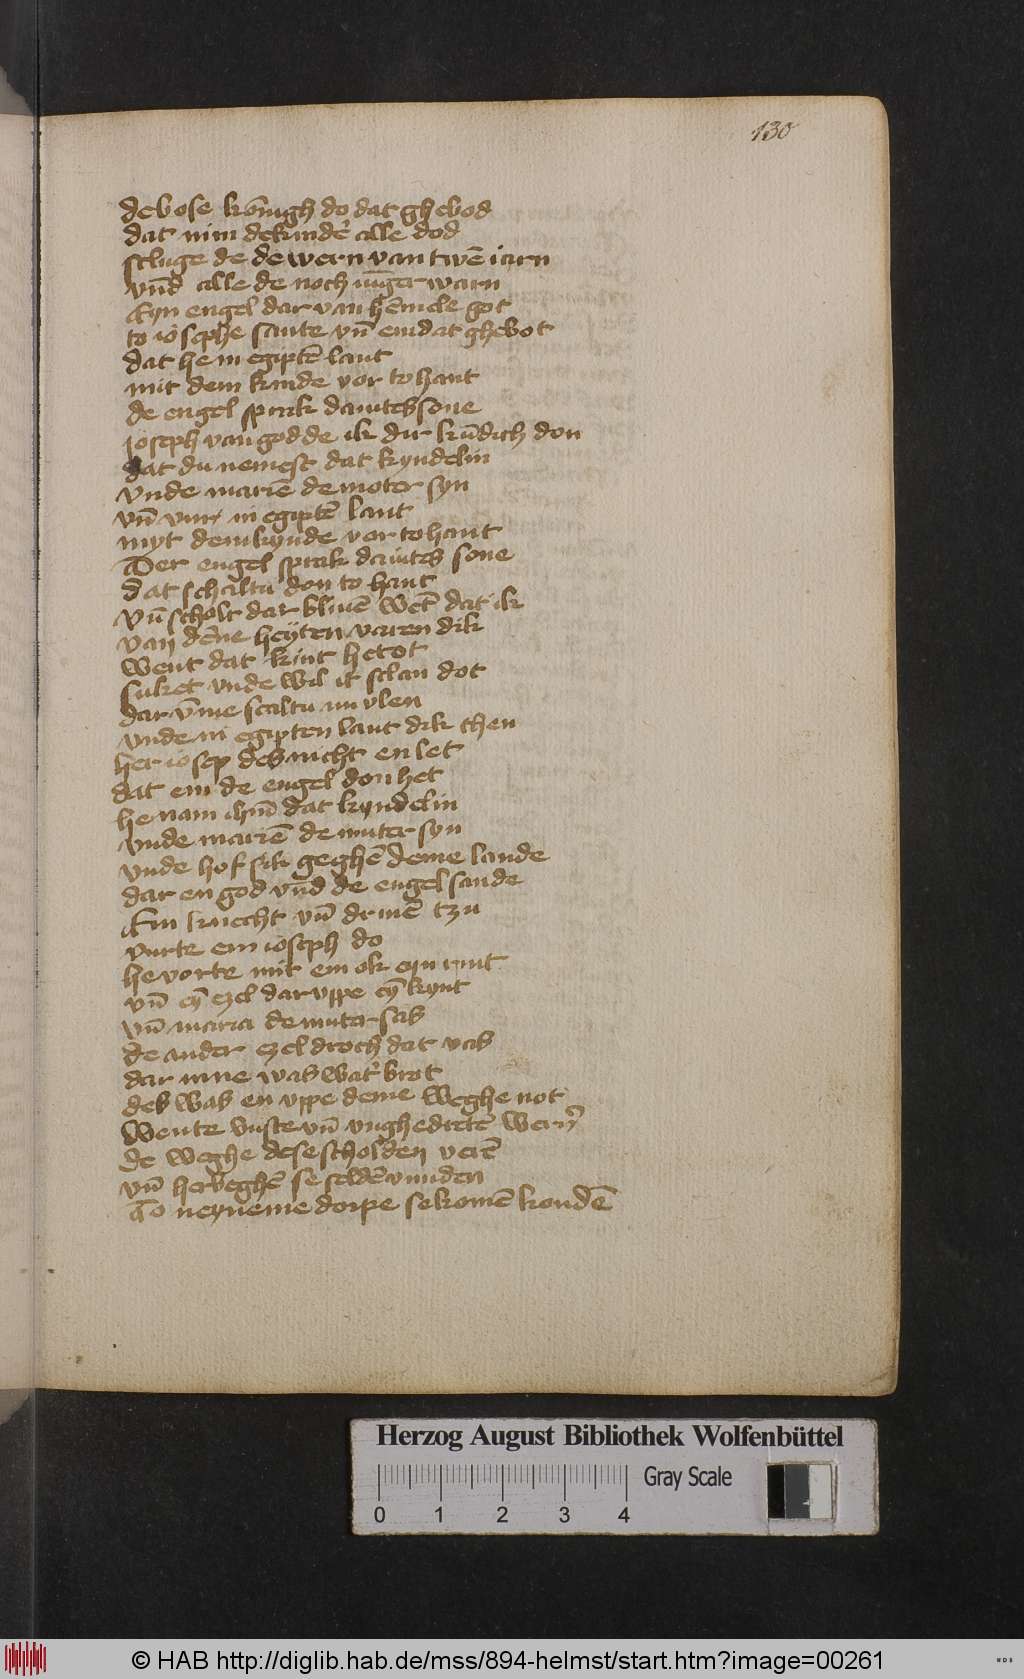 130
de bose kōnigh do dat ghebod
dat mīn de kindēr alle dod
scluge de de wern van twē iarn
vnd̄ alle de noch iūger warn
Eyn engel dar van hēmele got
to iosephe sante vn̄ em dat ghebot
dat he in egiptē lant
mit dem kinde vor to hant
de engel sprak dauites sone
ioseph van godde ik dir kūdich don
dat du nemest dat kyndelin
vnde mariē de moter syn
vn̄ in egiptē lant
myt dem kynde vor to hant
Der engel sprak dauites sone
dat schaltu don to hant
vn̄ scholt dar bliuē wēt dat ik
van dēne heyten varen dik
went dat kint he tot
suket vnde wil it sclan dot
dar v̄me scaltu nu vlen
vnde in egipten lant dik then
her iosep des nicht en let
dat em de engel don het
he nam ihm̄ dat kyndelin
vnde mariē de muter syn
vnde hof sik geghē deme lande
dar en god vnd̄ de engel sande
Ein knecht vn̄ drinē tzu
vurte em ioseph do
he vorte mit em ok eyn rint
vn̄ eȳ ezel dar vppe eȳ kynt
vn̄ maria de muter sas
de ander ezel droch dat vas
dar inne was wat' brot
des was en vppe deme weghe not
Wente wuste vn̄ vnghedretē wern̄
de weghe de se scholden verē
vn̄ herbeghē se seldē vunden
To neyneme dorpe se komē kondē
Herzog August Bibliothek Wolfenbüttel
0 1 2 3 4 Gray Scale
© HAB http://diglib.hab.de/mss/894-helmst/start.htm?image=00261